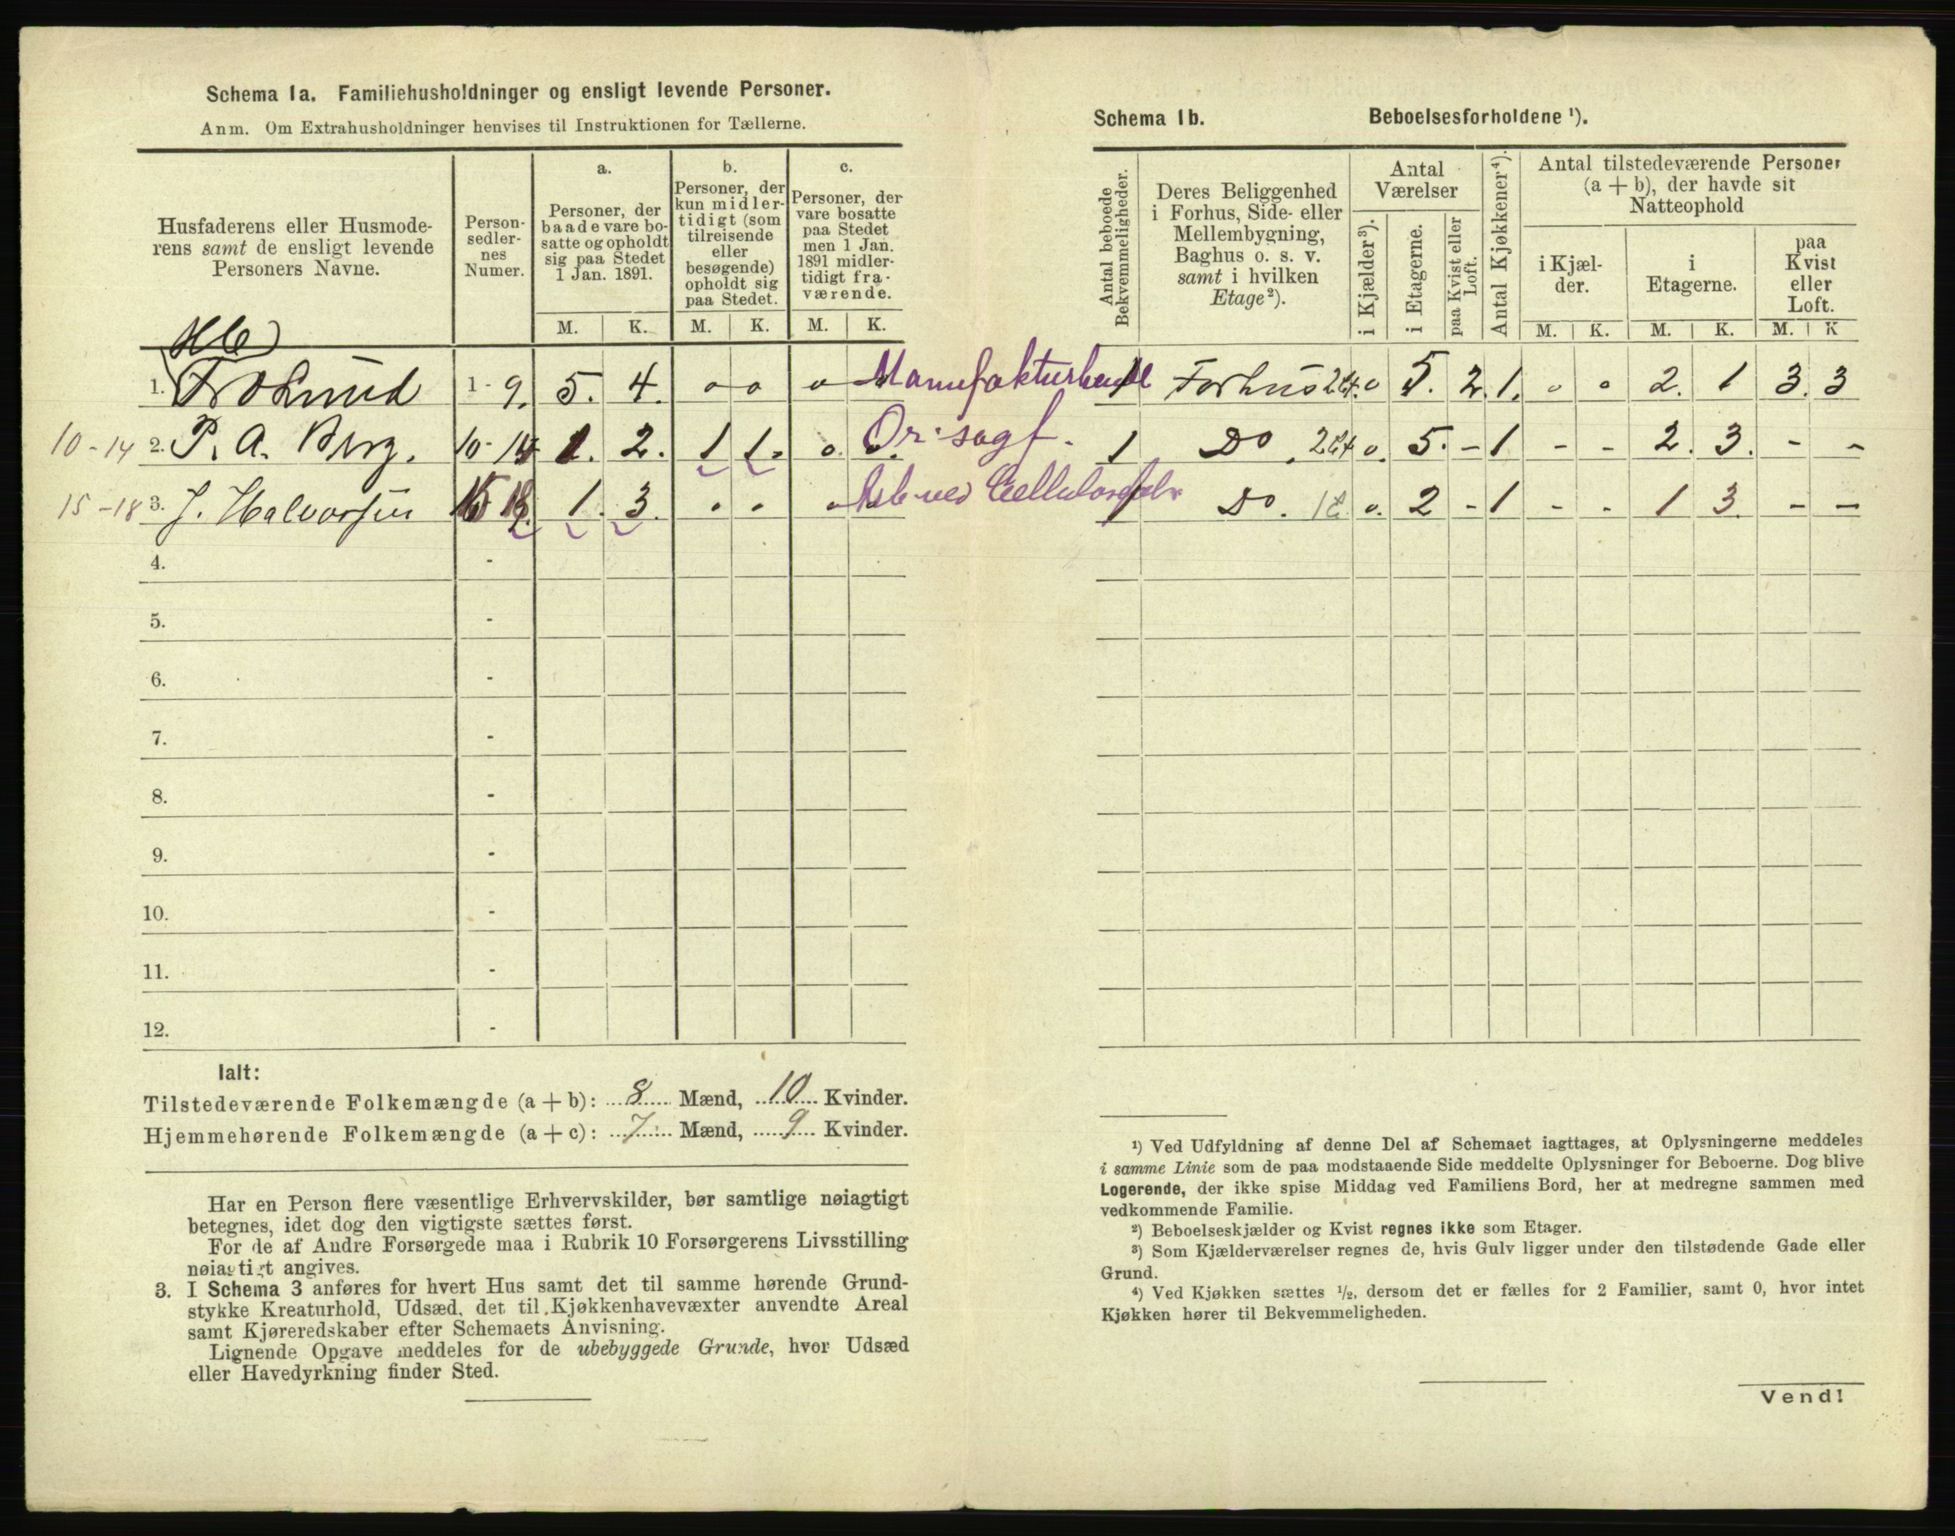 Schema 1a. Familiehusholdninger og ensligt levende Personer.
Anm. Om Extrahusholdninger henvises til Instruktionen for Tællerne.
Husfaderens eller Husmode-
rens samt de ensligt levende
Personers Navne.
Person-
sedler-
nes
Numer.
a.
Personer, der
baade vare bo-
satte og opholdt
sig paa Stedet
1 Jan. 1891.
M. K.
b.
Personer, der
kun midler-
tidigt (som
tilreisende
eller
besøgende)
opholdt sig
paa Stedet.
M. K.
c.
Personer, der
vare bosatte
paa Stedet
men 1 Jan.
1891 midler-
tidigt fra-
værende.
M. K.
1. 1 - 9. 5. 4. o o o Manufakturhandl
10-14 2. P. A. Berg. 10-14 1. 2. 1 1. o.
15-18 3. J. Halvorsen 1. 3.
4. -
5. -
6. -
7. -
8. -
9. -
10. -
11. -
12. -
Ialt:
Tilstedeværende Folkemængde (a + b): 8 Mænd, 10 Kvinder.
Hjemmehørende Folkemængde (a + c): 7 Mænd, 9 Kvinder.
Har en Person flere væsentlige Erhvervskilder, bør samtlige nøiagtigt
betegnes, idet dog den vigtigste sættes først.
For de af Andre Forsørgede maa i Rubrik 10 Forsørgerens Livsstilling
nøiagtigt angives.
3. I Schema 3 anføres for hvert Hus samt det til samme hørende Grund-
stykke Kreaturhold, Udsæd, det til Kjøkkenhavevæxter anvendte Areal
samt Kjøreredskaber efter Schemaets Anvisning.
Lignende Opgave meddeles for de ubebyggede Grunde, hvor Udsæd
eller Havedyrkning finder Sted.
Schema 1b. Beboelsesforholdene ¹).
Antal beboede
Bekvemmeligheder.
Deres Beliggenhed
i Forhus, Side- eller
Mellembygning,
Baghus o. s. v.
samt i hvilken
Etage²).
Antal
Værelser
i Kjælder³).
i Etagerne.
paa Kvist eller
Loft.
Antal Kjøkkener⁴).
Antal tilstedeværende Personer
(a + b), der havde sit
Natteophold
i Kjæl-
der.
M. K.
i
Etagerne.
M. K.
paa
Kvist
eller
Loft.
M. K
1 Forhus o 5. 2. 1. o o 2. 1 3. 3
1 Do. o. 5. - 1 - - 2. 3. - -
1 Do. o. 2 - 1 - - 1 3. - -
¹) Ved Udfyldning af denne Del af Schemaet iagttages, at Oplysningerne meddeles
i samme Linie som de paa modstaaende Side meddelte Oplysninger for Beboerne. Dog blive
Logerende, der ikke spise Middag ved Familiens Bord, her at medregne sammen med
vedkommende Familie.
²) Beboelseskjælder og Kvist regnes ikke som Etager.
³) Som Kjælderværelser regnes de, hvis Gulv ligger under den tilstødende Gade eller
Grund.
⁴) Ved Kjøkken sættes ½, dersom det er fælles for 2 Familier, samt 0, hvor intet
Kjøkken hører til Bekvemmeligheden.
Vend!